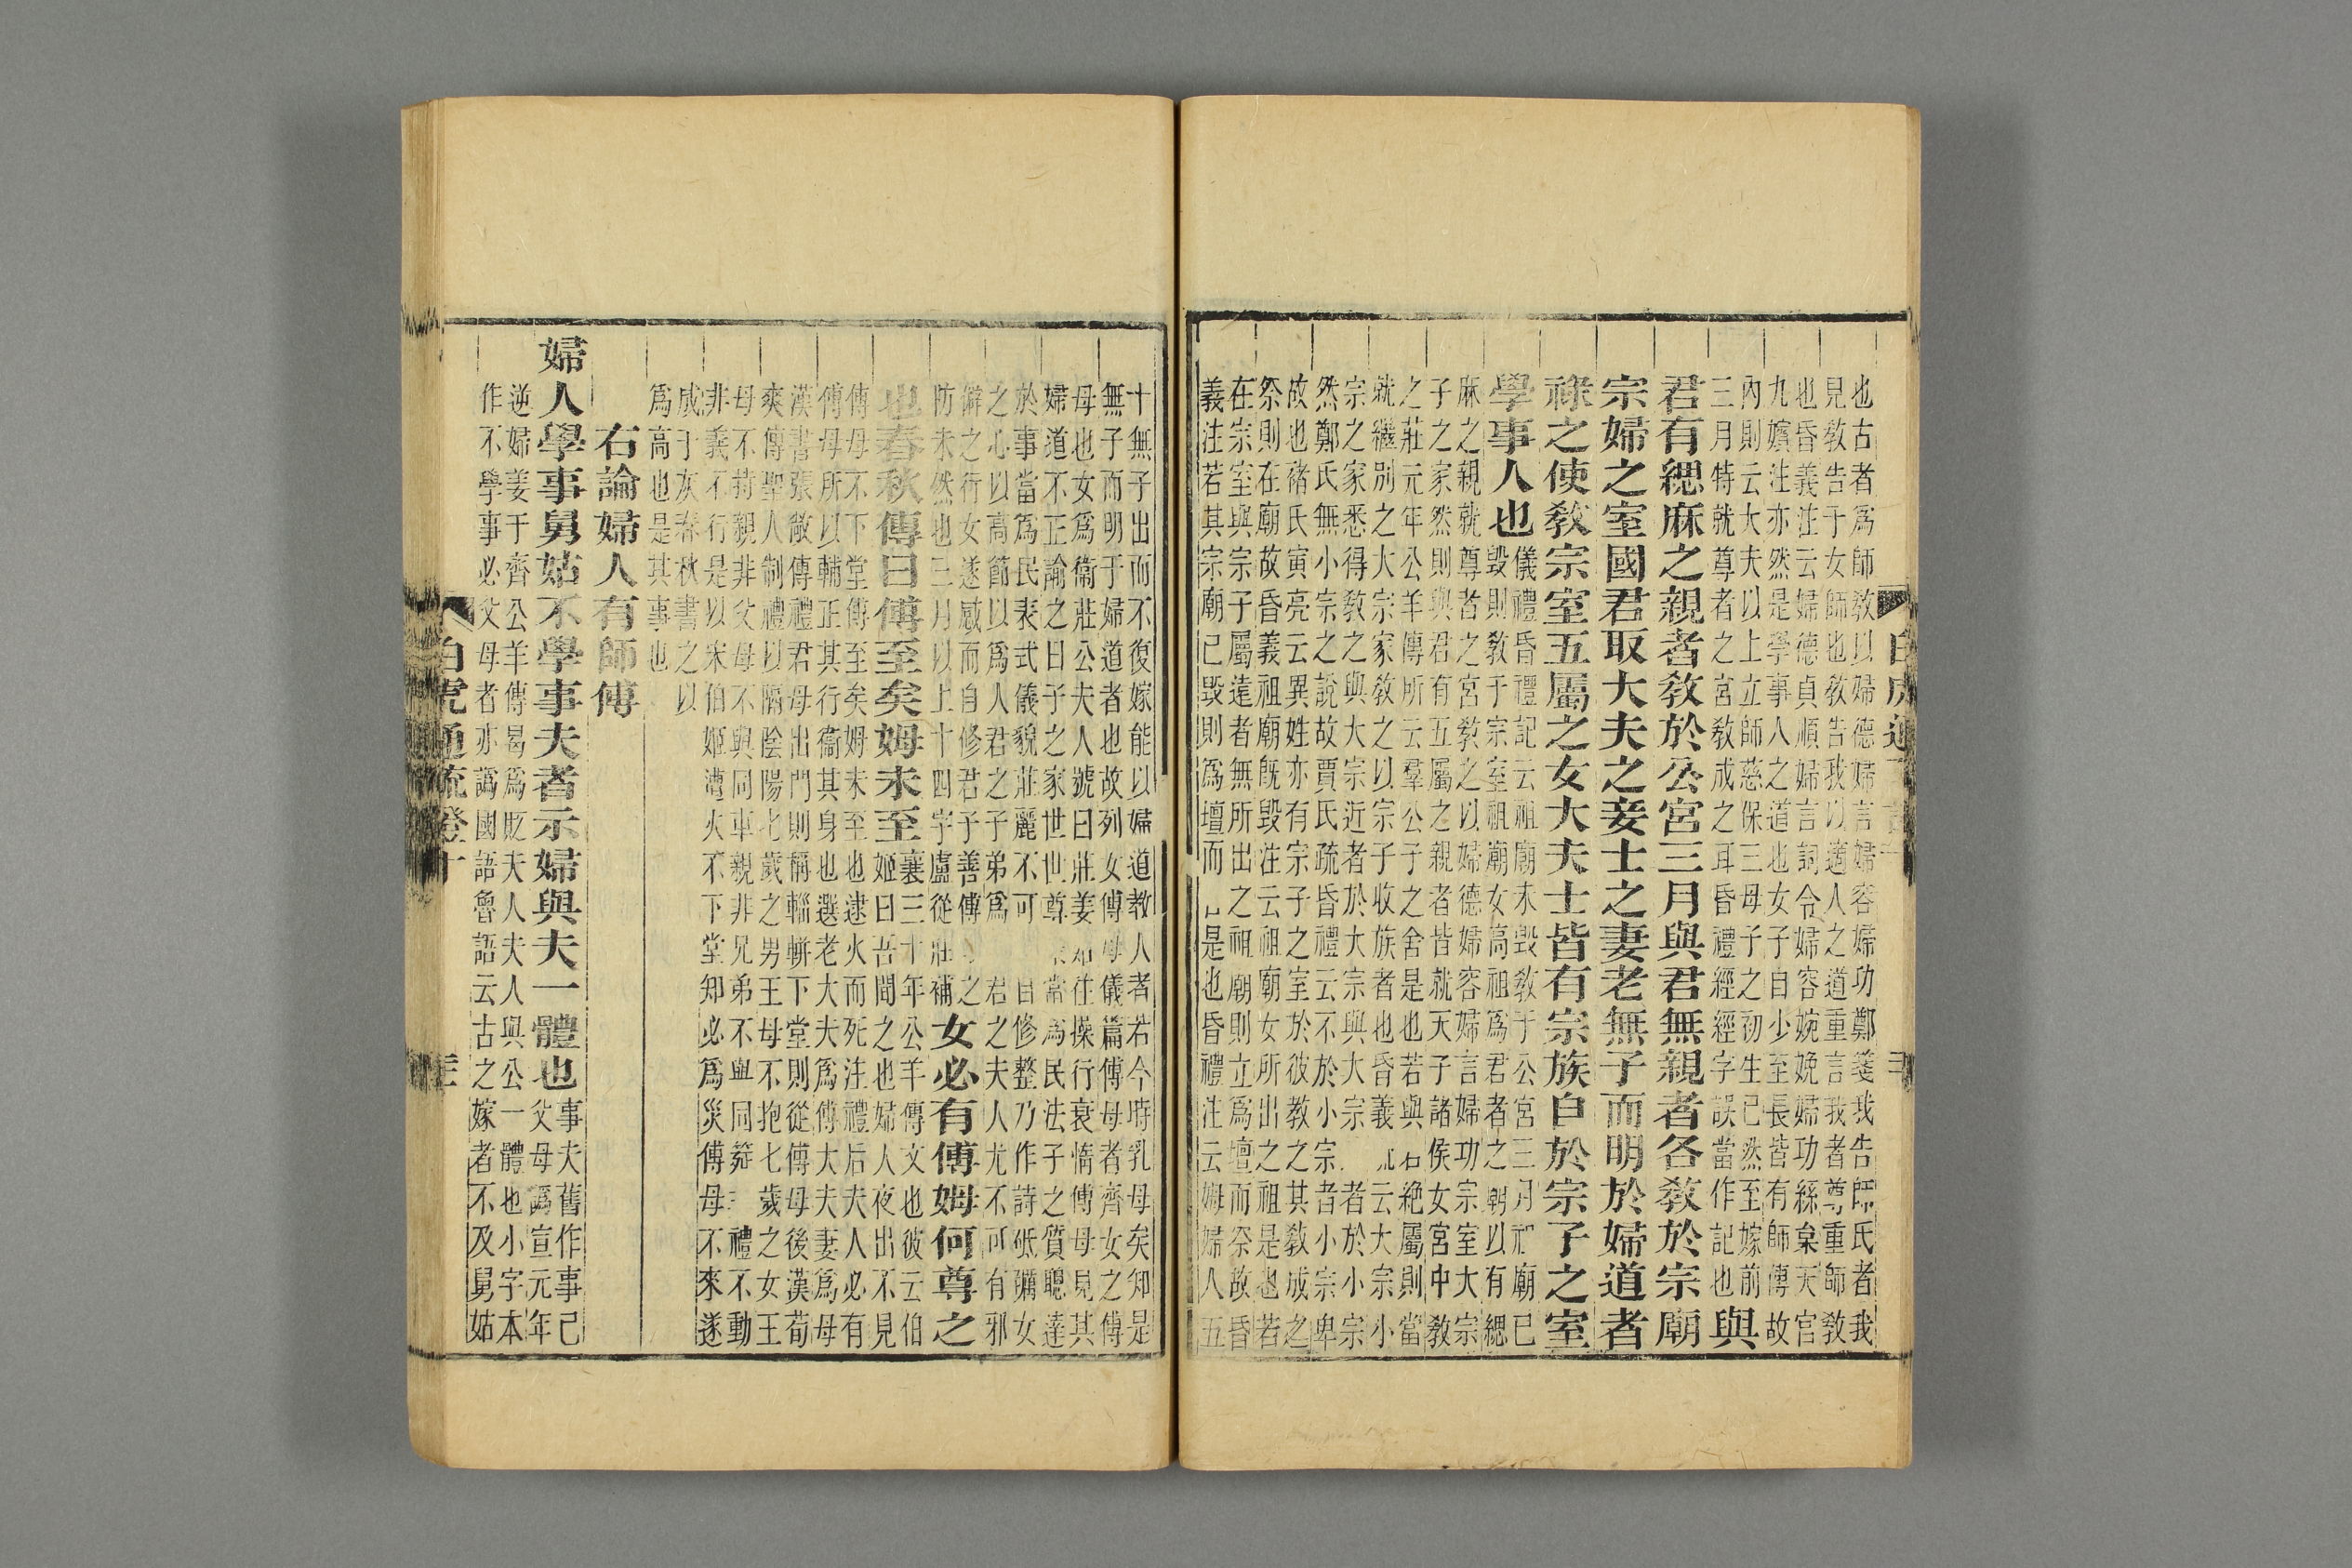 也古者爲師教以婦德婦言婦容婦功鄭箋我告師氏者我
見教告于女師也教告我以適人之道重言我者尊重師教
也昏義注云婦德貞順婦言詞令婦容婉娩婦功絲枲天官
九嬪注亦然是學事人之道也女子自少至長皆有師傅故
內則云大夫以上立師慈保三母子之初生已然至嫁前
三月特就尊者之宮教成之耳昏禮經經字誤當作記也與
君有緦麻之親者教於公宮三月與君無親者各教於宗廟
宗婦之室國君取大夫之妾士之妻老無子而明於婦道者
祿之使教宗室五屬之女大夫士皆有宗族自於宗子之室
學事人也
儀禮昏禮記云祖廟未毀教于公宮三月祖廟已
毀則教于宗室祖廟女高祖爲君者之廟以有緦
麻之親就尊者之宮教之以婦德婦容婦言婦功宗室大宗
子之家然則與君有五屬之親者皆就天子諸侯女宮中教
之莊元年公羊傳所云羣公子之舍是也若與君絕屬則當
就繼別之大宗家教之以宗子收族者也昏義疏云大宗小
宗之家悉得教之與大宗近者於大宗與大宗者於小宗
然鄭氏無小宗之說故賈氏疏昏禮云不於小宗者小宗卑
故也褚氏寅亮云異姓亦有宗子之室於彼教之其教成之
祭則在廟故昏義祖廟既毀注云祖廟女所出之祖是也若
在宗室與宗子屬遠者無所出之祖廟則立爲壇而祭故昏
義注若其宗廟已毀則爲壇而是也昏禮注云姆婦人五
白虎通
十無子出而不復嫁能以婦道教人者若今時乳母矣知是
無子而明于婦道者也故列女傳母儀篇傅母者齊女之傅
母也女爲衞莊公夫人號曰莊姜往操行衰惰傅母見其
婦道不正諭之曰子之家世世尊當爲民法子之質聰達
於事當爲民表式儀貌莊麗不可自修整乃作詩砥礪女
之心以高節以爲人君之子弟爲君之夫人尤不可有邪
僻之行女遂感而自修君子善傅之
防未然也三月以上十四字盧從莊補女必有傅姆何尊之
也春秋傳曰傅至矣姆未至
襄三十年公羊傳文也彼云伯
姬曰吾聞之也婦人夜出不見
傅母不下堂傅至矣姆未至也逮火而死注禮后夫人必有
傅母所以輔正其行衞其身也選老大夫爲傅大夫妻爲母
漢書張敞傳禮君母出門則稱輜軿下堂則從傅母後漢荀
爽傳聖人制禮以隔陰陽七歲之男王母不抱七歲之女王
母不持親非父母不與同車親非兄弟不與同筵非禮不動
非義不行是以宋伯姬遭火不下堂知必爲災傅母不來遂
成于灰春秋書之以
爲高也是其事也
右論婦人有師傅
婦人學事舅姑不學事夫者示婦與夫一體也
事夫舊作事己
父母譌宣元年
逆婦姜于齊公羊傳曷爲貶夫人夫人與公一體也小字本
作不學事必父母者亦譌國語魯語云古之嫁者不及舅姑
白虎通疏證十